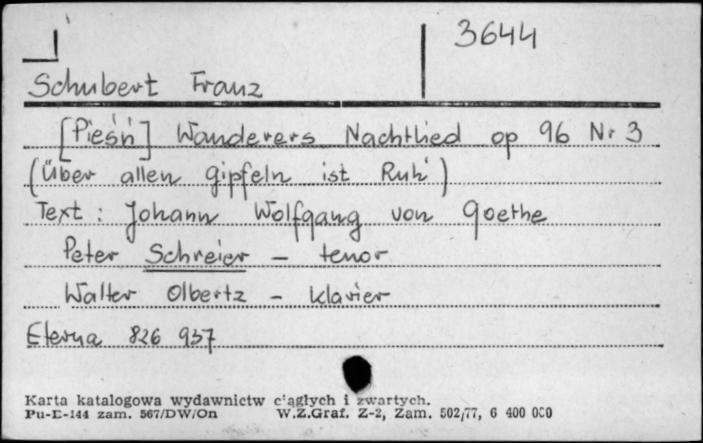 3644
Schubert Franz
[Pieśń] Wanderers Nachtlied op 96 Nr 3
(Über allen Gipfeln ist Ruh')
Text: Johann Wolfgang von Goethe
Peter Schreier - tenor
Walter Olbertz - klavier
Eterna 826 937
Karta katalogowa wydawnictw ciągłych i zwartych.
Pu-E-144 zam. 567/DW/On W.Z.Graf. Z-2, Zam. 502/77, 6 400 000